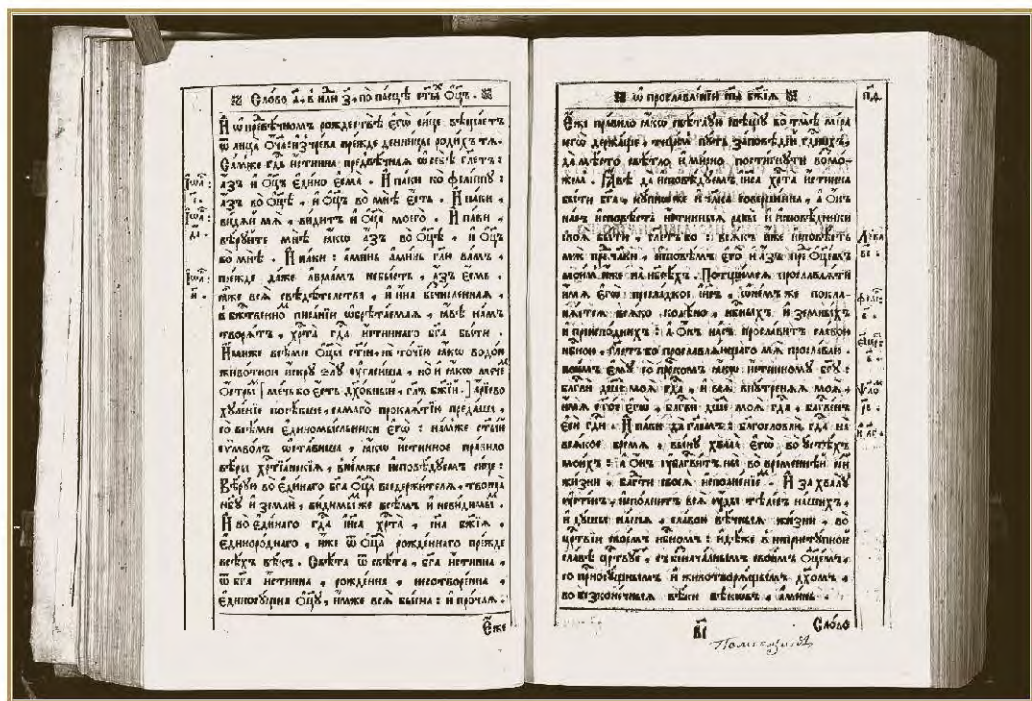 Сло́во а҃, в҃ не́дѣлю з҃, по па́сцѣ ст҃ы́хъ О҆ц҃ъ.
И҆ ѡ҆ превѣ́чномъ рождествѣ̀ є҆гѡ̀ си́це вѣща́етъ
ѿ лица̀ Ѻ҆́ча: и҆з̾ чре́ва пре́жде денни́цы роди́хъ тѧ.
Са́мже гд҃ь и҆́стинна предвѣ́чнаѧ ѡ҆ себѣ̀ гл҃етъ:
а҆́зъ и҆ Ѻ҆ц҃ъ є҆ди́но є҆сма̀. И҆ па́ки ко фїлі́ппꙋ:
а҆́зъ во Ѻ҆ц҃ѣ̀, и҆ Ѻ҆ц҃ъ во мнѣ̀ є҆́сть. И҆ па́ки,
ви́дѧи мѧ̀, ви́дитъ и҆ Ѻ҆ц҃а̀ моего̀. И҆ па́ки,
вѣ́рꙋйте мнѣ̀ ꙗ҆́кѡ а҆́зъ во Ѻ҆ц҃ѣ̀, и҆ Ѻ҆ц҃ъ
во мнѣ̀. И҆ па́ки: а҆ми́нь а҆ми́нь гл҃ю ва́мъ,
пре́жде да́же а҆враа́мъ небы́сть, а҆́зъ є҆́смь.
ꙗ҆́же всѧ̀ свѣдѣ́телства, и҆ и҆́на безчи́сленнаѧ,
в бж҃е́ственномъ писа́нїи ѡ҆брѣта́емаѧ, ꙗ҆́вѣ на́мъ
творѧ́тъ, хр҇та̀ гд҇а и҆́стиннаго бг҃а бы́ти.
И҆́миже всѣ́ми Ѻ҆ц҃ы̀ ст҃і́и, не то́чїю ꙗ҆́кѡ водо́ю
живо́тною и҆́скрꙋ ѕлꙋ̀ ᲂу҆гаси́ша, но и҆ ꙗ҆́кѡ мече́мъ
Ѻ҆́стрымъ [ме́чь бо є҆́сть дх҃о́вный, гл҃ъ бж҃їй.] а҆́рїево
хꙋле́нїе посѣ́кше, самаго̀ прокла́тїю преда́ша,
со всѣ́ми є҆диномы́сленники є҆гѡ̀: на́мже ст҃ы́й
сѵ́мволъ ѡ҆ста́виша, ꙗ҆́кѡ и҆́стинное пра́вило
вѣ́ры хр҇тїа́нскїѧ, в не́мже и҆сповѣ́дꙋемъ си́це:
Вѣ́рꙋю во є҆ди́наго бг҃а Ѻ҆ц҃а̀ вседержи́телѧ, творца̀
нб҃ꙋ и҆ землѝ, ви́димымже всѣ́мъ и҆ неви́димымъ.
И҆ во є҆ди́наго гд҇а і҆и҃са хр҇та̀, сн҃а бж҃їѧ,
є҆диноро́днаго, и҆́же ѿ Ѻ҆ц҃а̀ рожде́ннаго пре́жде
всѣ́хъ вѣ́къ. Свѣ́та ѿ свѣ́та, бг҃а и҆́стинна,
ѿ бг҃а и҆́стинна, рожде́нна, несотворе́нна,
є҆диносꙋ́щна Ѻ҆ц҃ꙋ̀, и҆́мже всѧ̀ бы́ша: и҆ про́чаѧ.
Є҆́же
І҆ѡа́: і҃.
І҆ѡа́: д҃і.
І҆ѡа́: и҃.
ѡ҆ прославле́нїи сн҃а бж҃їѧ
п҃д.
Є҆́же пра́вило ꙗ҆́кѡ свѣ́тлꙋю свѣщꙋ̀ во тмѣ̀ мі́ра
сегѡ̀ держа́ще, тщи́мсѧ пꙋ́ть за́повѣдїй гд҇нихъ,
да мѣ́сто свѣ́тло и҆ ми́рно пости́гнꙋти возмо́-
жемъ. Ꙗ҆́вѣ да и҆сповѣ́дꙋемъ і҆и҃са хр҇та̀ и҆́стинна
бы́ти бг҃а, кꙋ́пноже и҆ чл҃вѣ́ка соверше́нна, а҆ Ѻ҆́нъ
на́съ и҆сповѣ́сть и҆́стинныѧ рабы̀ и҆ и҆сповѣ́дники
своѧ̀ бы́ти, гл҃етъ бо: всѧ́къ и҆́же и҆сповѣ́сть
мѧ̀ пред̾ чл҃вѣ́ки, и҆сповѣ́мъ є҆го̀ и҆ а҆́зъ пред̾ Ѻ҆ц҃е́мъ
мои́мъ и҆́же на нб҃сѣ́хъ. Потщи́мсѧ прославлѧ́ти
и҆́мѧ є҆гѡ̀ пресла́дкое і҆и҃съ, ѡ҆ не́мъ же поклa-
нѧ́етсѧ всѧ́ко колѣ́но, нб҃ныхъ и҆ земны́хъ
и҆ преиспо́днихъ: а҆ Ѻ҆́нъ на́съ просла́витъ сла́вою
нб҃ною, гл҃етъ бо прославлѧ́ющаго мѧ̀ просла́влю.
вопїи́мъ є҆мꙋ̀ со прⷪ҇ро́комъ ꙗ҆́кѡ и҆́стинномꙋ бг҃ꙋ:
бл҃гвѝ дш҃е моѧ̀ гд҇а, и҆ всѧ̀ внꙋ́треннѧѧ моѧ̀,
и҆́мѧ ст҃о́е є҆гѡ̀, бл҃гвѝ дш҃е моѧ̀ гд҇а, бл҃гве́нъ
є҆сѝ гд҇и. И҆ па́ки да гл҃емъ: благословлю̀ гд҇а на
всѧ́кое вре́мѧ, вы́нꙋ хвала̀ є҆гѡ̀ во ᲂу҆стѣ́хъ
мои́хъ: а҆ Ѻ҆́нъ сꙋгꙋби́тъ ны̀ во вре́меннѣй се́й
жи́зни, бл҃гти своеѧ̀ и҆сполне́нїе. И҆ за хвалꙋ̀
ᲂу҆сте́нъ, и҆спо́лнитъ всѧ̀ ᲂу҆́ды тѣле́съ на́шихъ,
и҆ дꙋ́шы на́шѧ, сла́вою вѣ́чныѧ жи́зни, во
црⷭ҇твїи свое́мъ нб҃номъ: и҆дѣ́же в непристꙋ́пной
сла́вѣ црⷭ҇твꙋетъ, съ безнача́лнымъ свои́мъ Ѻ҆ц҃е́мъ,
со присносꙋ́щнымъ и҆ животворѧ́щымъ дх҃омъ,
во безконе́чныѧ вѣ́ки вѣкѡ́въ, а҆ми́нь.
в҃і
Сло́во